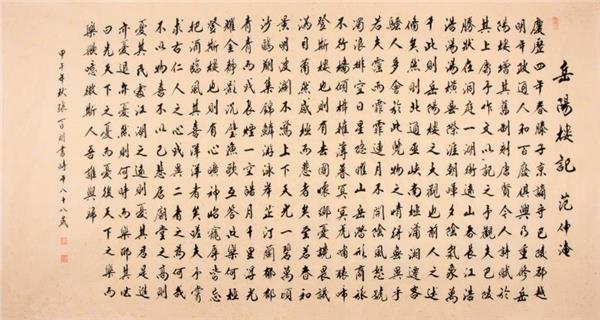 岳陽樓記 范仲淹
慶歷四年春滕子京謫守巴陵郡越
明年政通人和百廢俱興乃重修岳
陽樓增其舊制刻唐賢今人詩賦於
其上屬予作文以記之予觀夫巴陵
勝狀在洞庭一湖銜遠山吞長江浩
浩湯湯橫無際涯朝暉夕陰氣象萬
千此則岳陽樓之大觀也前人之述
備矣然則北通巫峽南極瀟湘遷客
騷人多會於此覽物之情得無異乎
若夫霪雨霏霏連月不開陰風怒號
濁浪排空日星隱曜山岳潛形商旅
不行檣傾楫摧薄暮冥冥虎嘯猿啼
登斯樓也則有去國懷鄉憂讒畏譏
滿目蕭然感極而悲者矣至若春和
景明波瀾不驚上下天光一碧萬頃
沙鷗翔集錦鱗游泳岸芷汀蘭郁郁
青青而或長煙一空皓月千里浮光
耀金靜影沉璧漁歌互答此樂何極
登斯樓也則有心曠神怡寵辱皆忘
把酒臨風其喜洋洋者矣嗟夫予嘗
求古仁人之心或異二者之為何哉
不以物喜不以己悲居廟堂之高則
憂其民處江湖之遠則憂其君是進
亦憂退亦憂然則何時而樂耶其必
曰先天下之憂而憂後天下之樂而
樂歟噫微斯人吾誰與歸
甲子年秋張書時年八十八歲